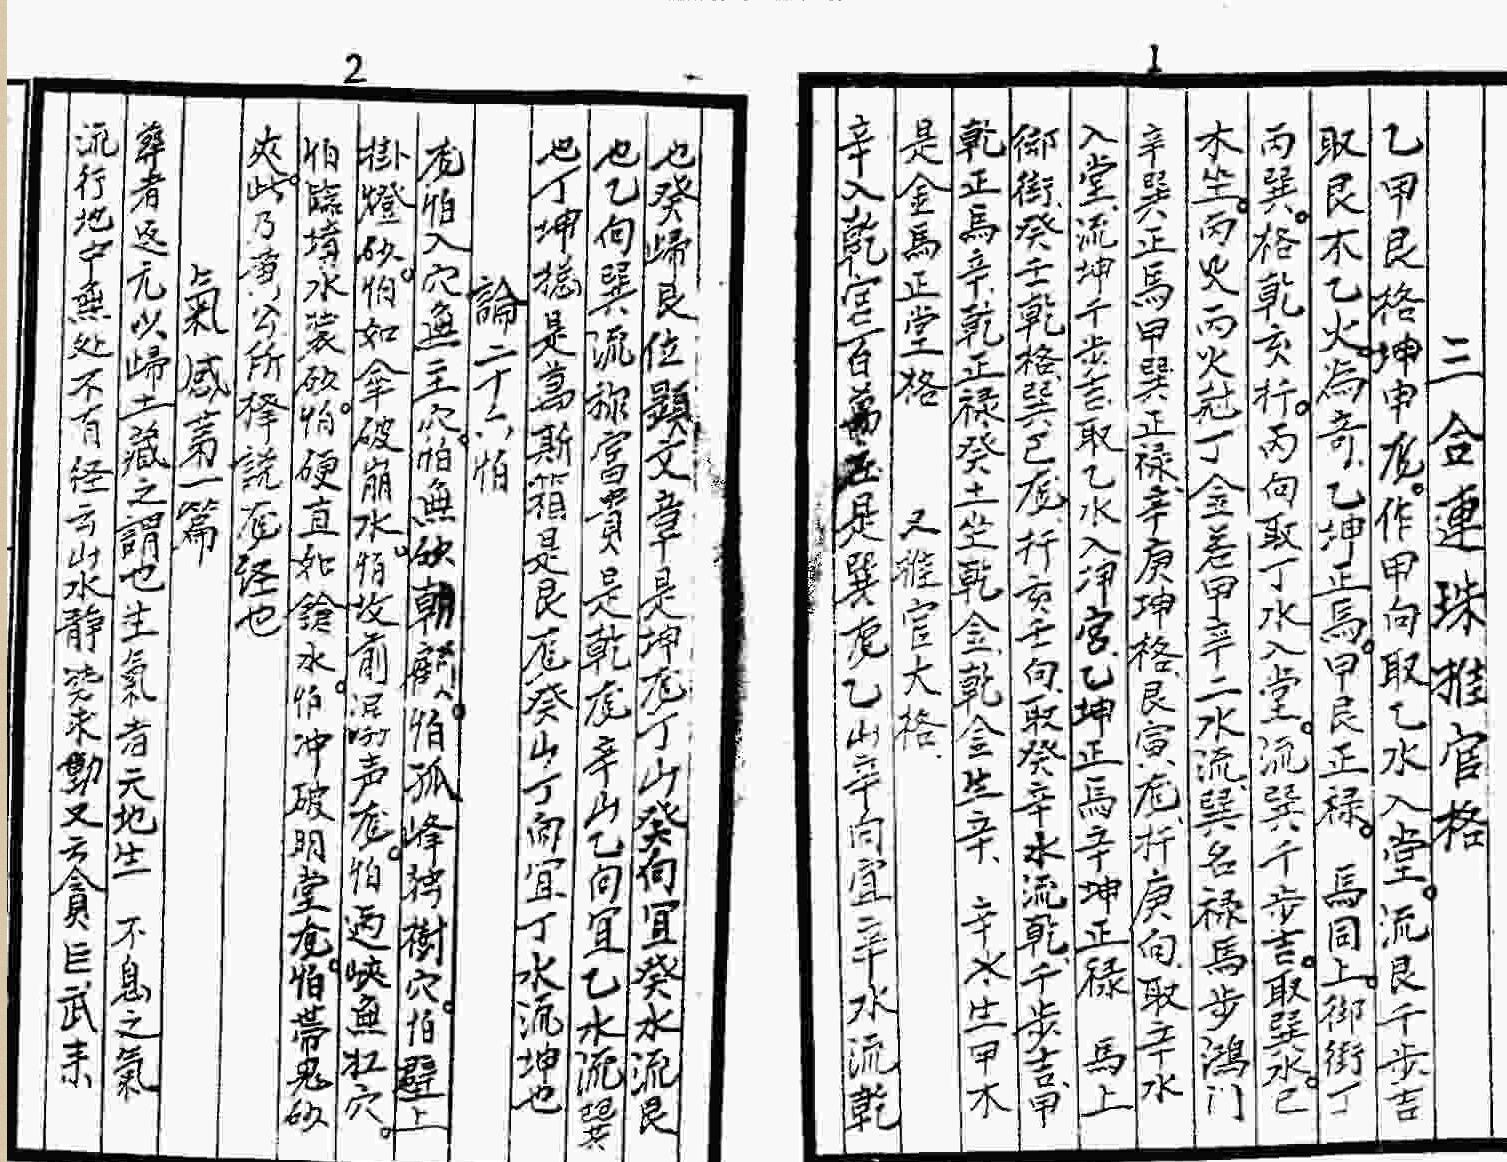 1
三合連珠推官格
乙甲艮格坤申龙作甲向取乙水入堂流艮千步吉
取艮木乙火為奇乙坤正馬甲艮正禄 馬同上御街丁
丙巽格乾亥行丙向取丁水入堂流巽千步吉取巽水巳
木坐丙火丙火尅丁金巻甲辛二水流巽名禄馬步鴻门
辛巽正馬甲巽正禄辛庚坤格艮寅龙行庚向取辛水
入堂流坤千步吉取乙水入宫乙坤正馬辛坤正禄 馬上
御街癸壬乾格巽巳龙行亥壬向取癸辛水流乾千步吉甲
乾正馬辛乾正禄癸土坐乾金乾金生辛 辛水生甲木
是金馬正堂格 又推官大格
辛入乾宫百萬庄是巽龙乙山辛向宜辛水流乾
2
也癸歸艮位顕文章是坤龙丁山癸向宜癸水流艮
也乙向巽流称富貴是乾龙辛山乙向宜乙水流巽
也丁坤揔是萬斯箱是艮龙癸山丁向宜丁水流坤也
論二十六怕
龙怕入穴無主穴怕無砂朝顧怕孤峰独樹穴怕壁上
掛燈砂怕如傘破崩水怕坟前混声龙怕過峽無扛穴
怕臨墳水裳砍怕硬直如鎗水怕冲破明堂龙怕帯鬼砂
夾此乃黄公所擇説龙経也
氣感第一篇
葬者返元以歸土藏之謂也生氣者元地生 不息之氣
流行地中無处不有経云山水静 来動又云貪巨武来